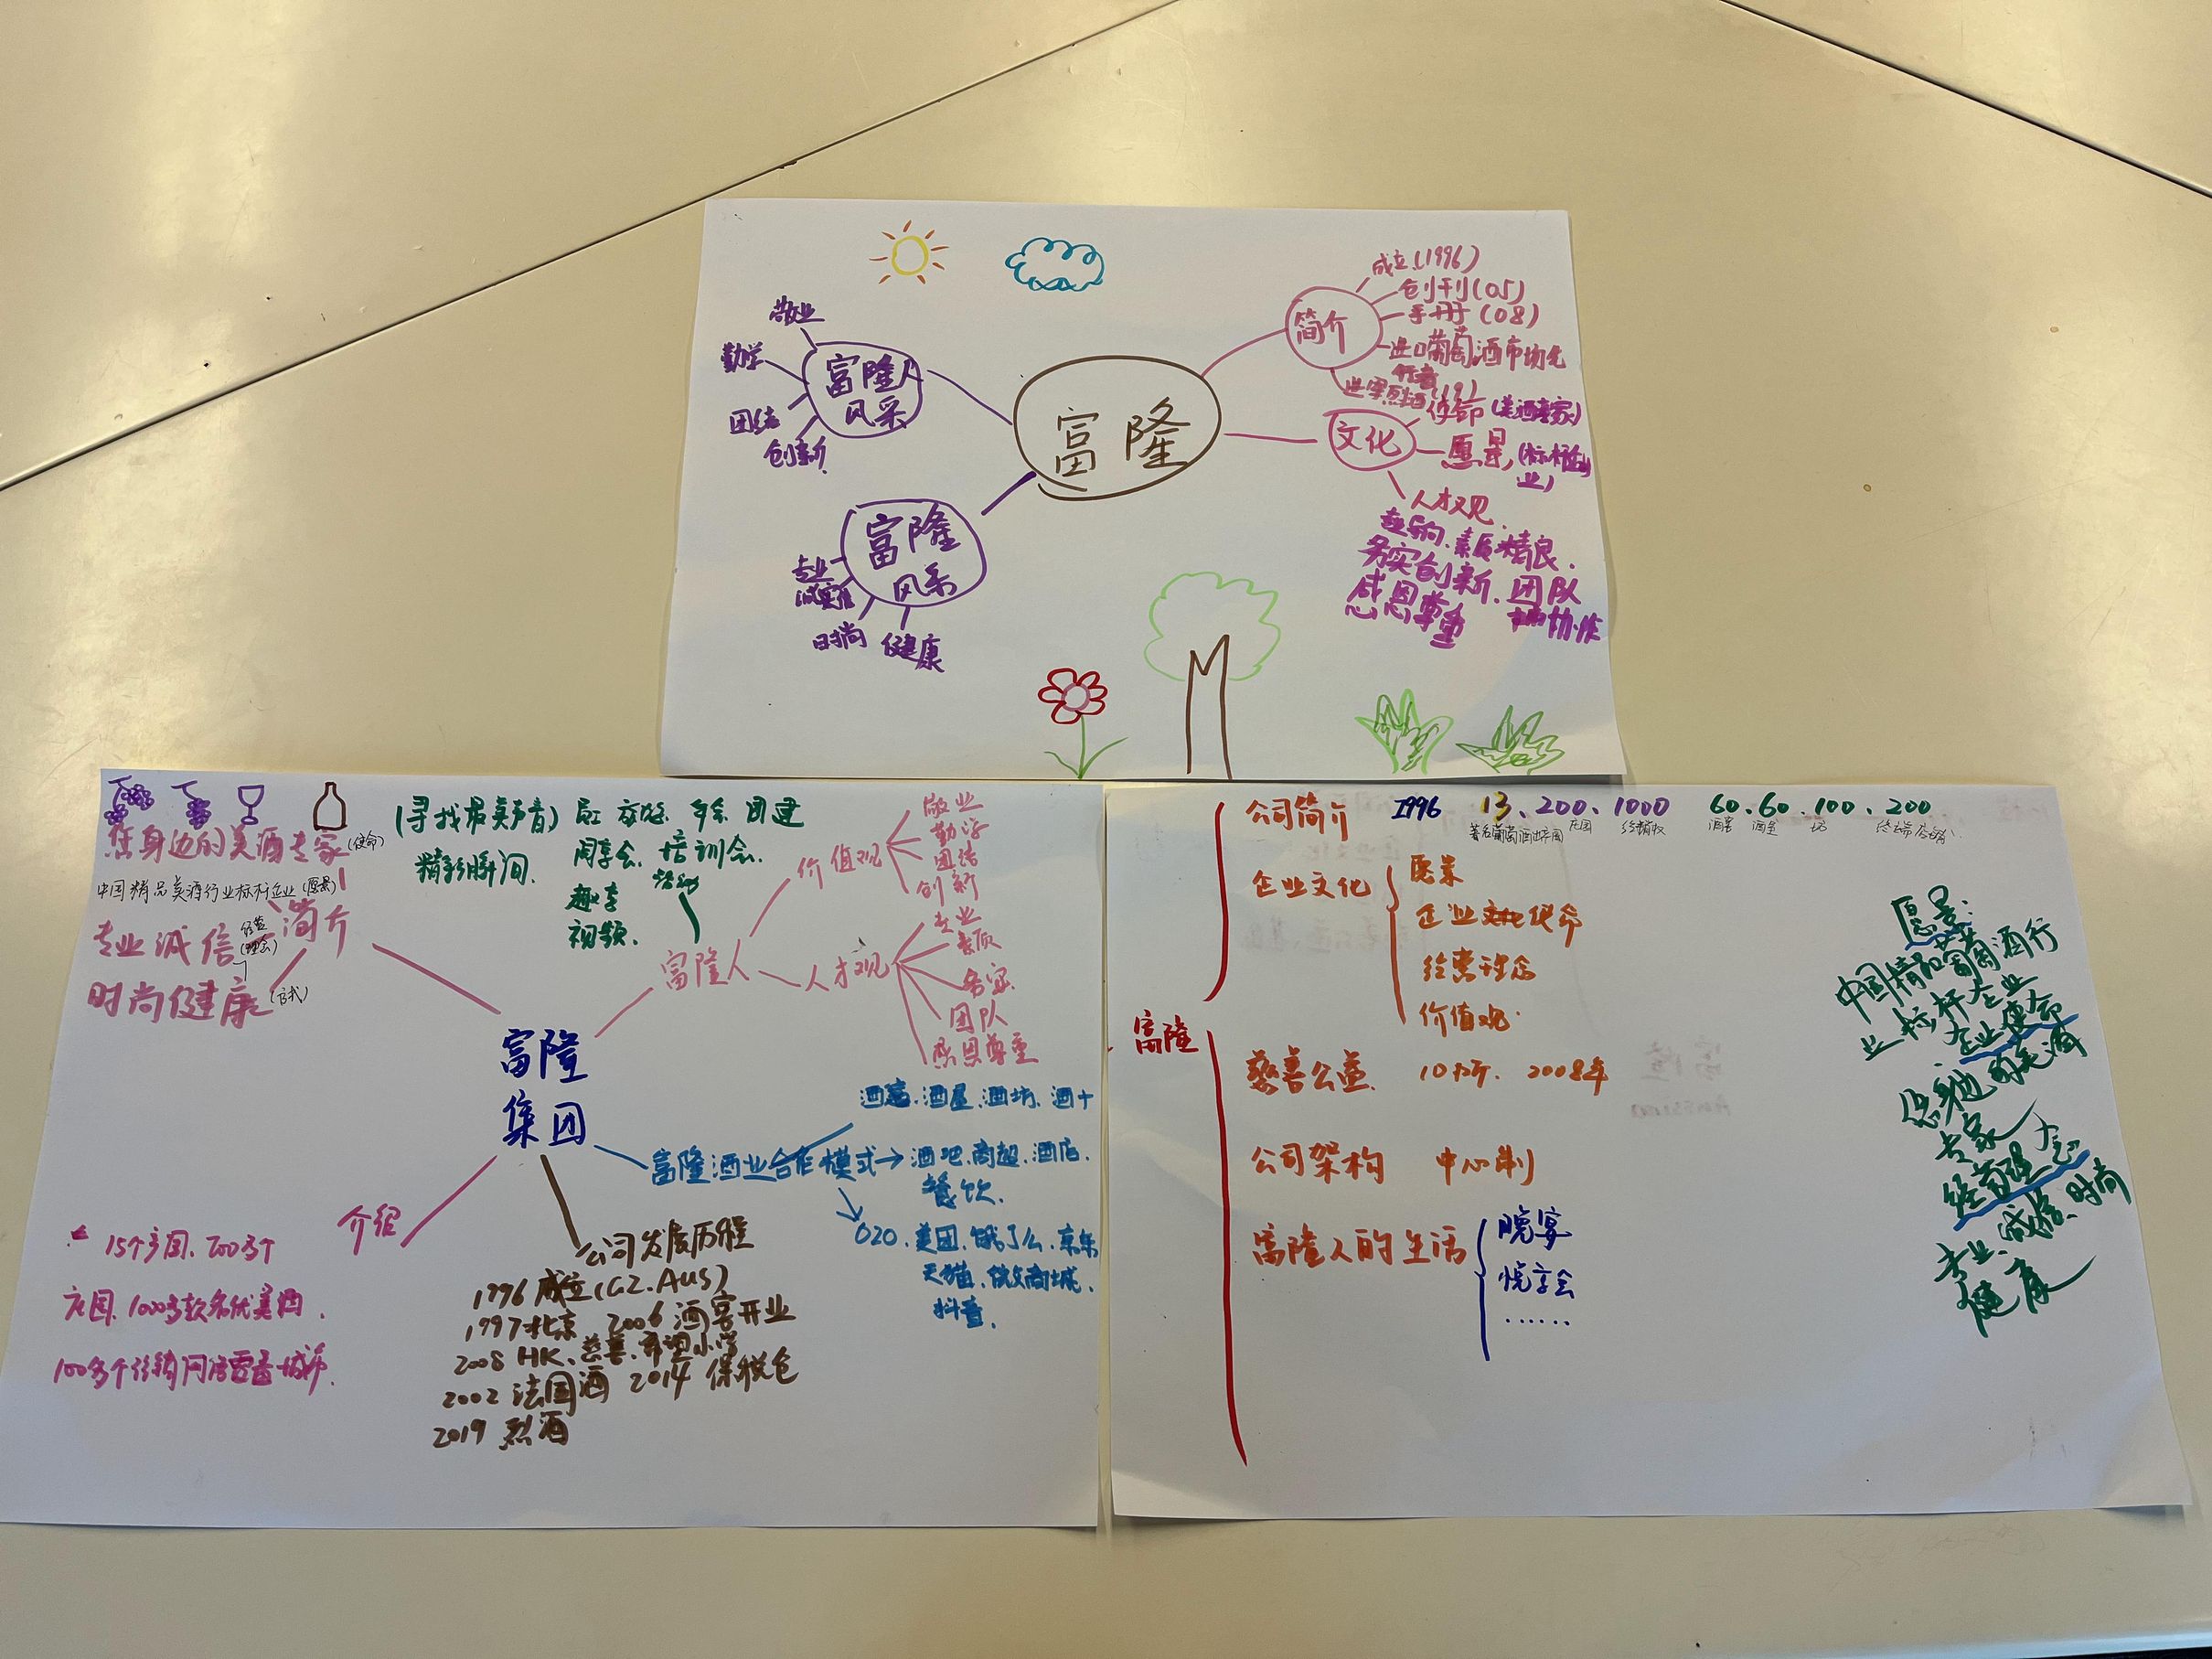 富隆
简介
成立(1996)
创刊(05)
手册(08)
进口葡萄酒市场先
行者
进军烈酒(19)
文化
使命(美酒专家)
愿景(标杆企
业)
人才观
素质精良.
务实创新.团队
感恩尊重 协作
富隆人
风采
敬业
勤学
团结
创新
富隆
风采
专业
诚信
时尚 健康
富隆
集团
简介
您身边的美酒专家(使命)
中国精品美酒行业标杆企业(愿景)
专业诚信
时尚健康
(寻找最美声音)
精彩瞬间.
年会 团建
周享会.培训会.
视频.
活动
富隆人
价值观
敬业
勤学
团结
创新
人才观
专业
素质
务实
团队
感恩尊重
富隆酒业合作模式→酒吧.商超.酒店.
餐饮.
酒窖.酒屋.酒坊.酒+
O2O.美团.饿了么.京东
天猫.
抖音.
公司发展历程
1996成立(GZ.AUS)
1997北京 2006酒窖开业
2008 HK、慈善、希望小学
2002 法国酒 2014 保税仓
2019 烈酒
介绍
15个产国、200多个
庄园、1000多款名优美酒.
100多个经销门店覆盖城市.
富隆
公司简介 1996 13、200、1000 60、60、100、200
著名葡萄酒出产国 庄园 经销权 酒窖 酒屋 坊
企业文化
愿景
企业使命
经营理念
价值观
慈善公益 10场所. 2008年
公司架构 中心制
富隆人的生活
晚宴
悦享会
......
愿景:
中国精品葡萄酒行
业标杆企业
企业使命
您身边的美酒
专家
经商理念
专业、诚信、时尚
健康